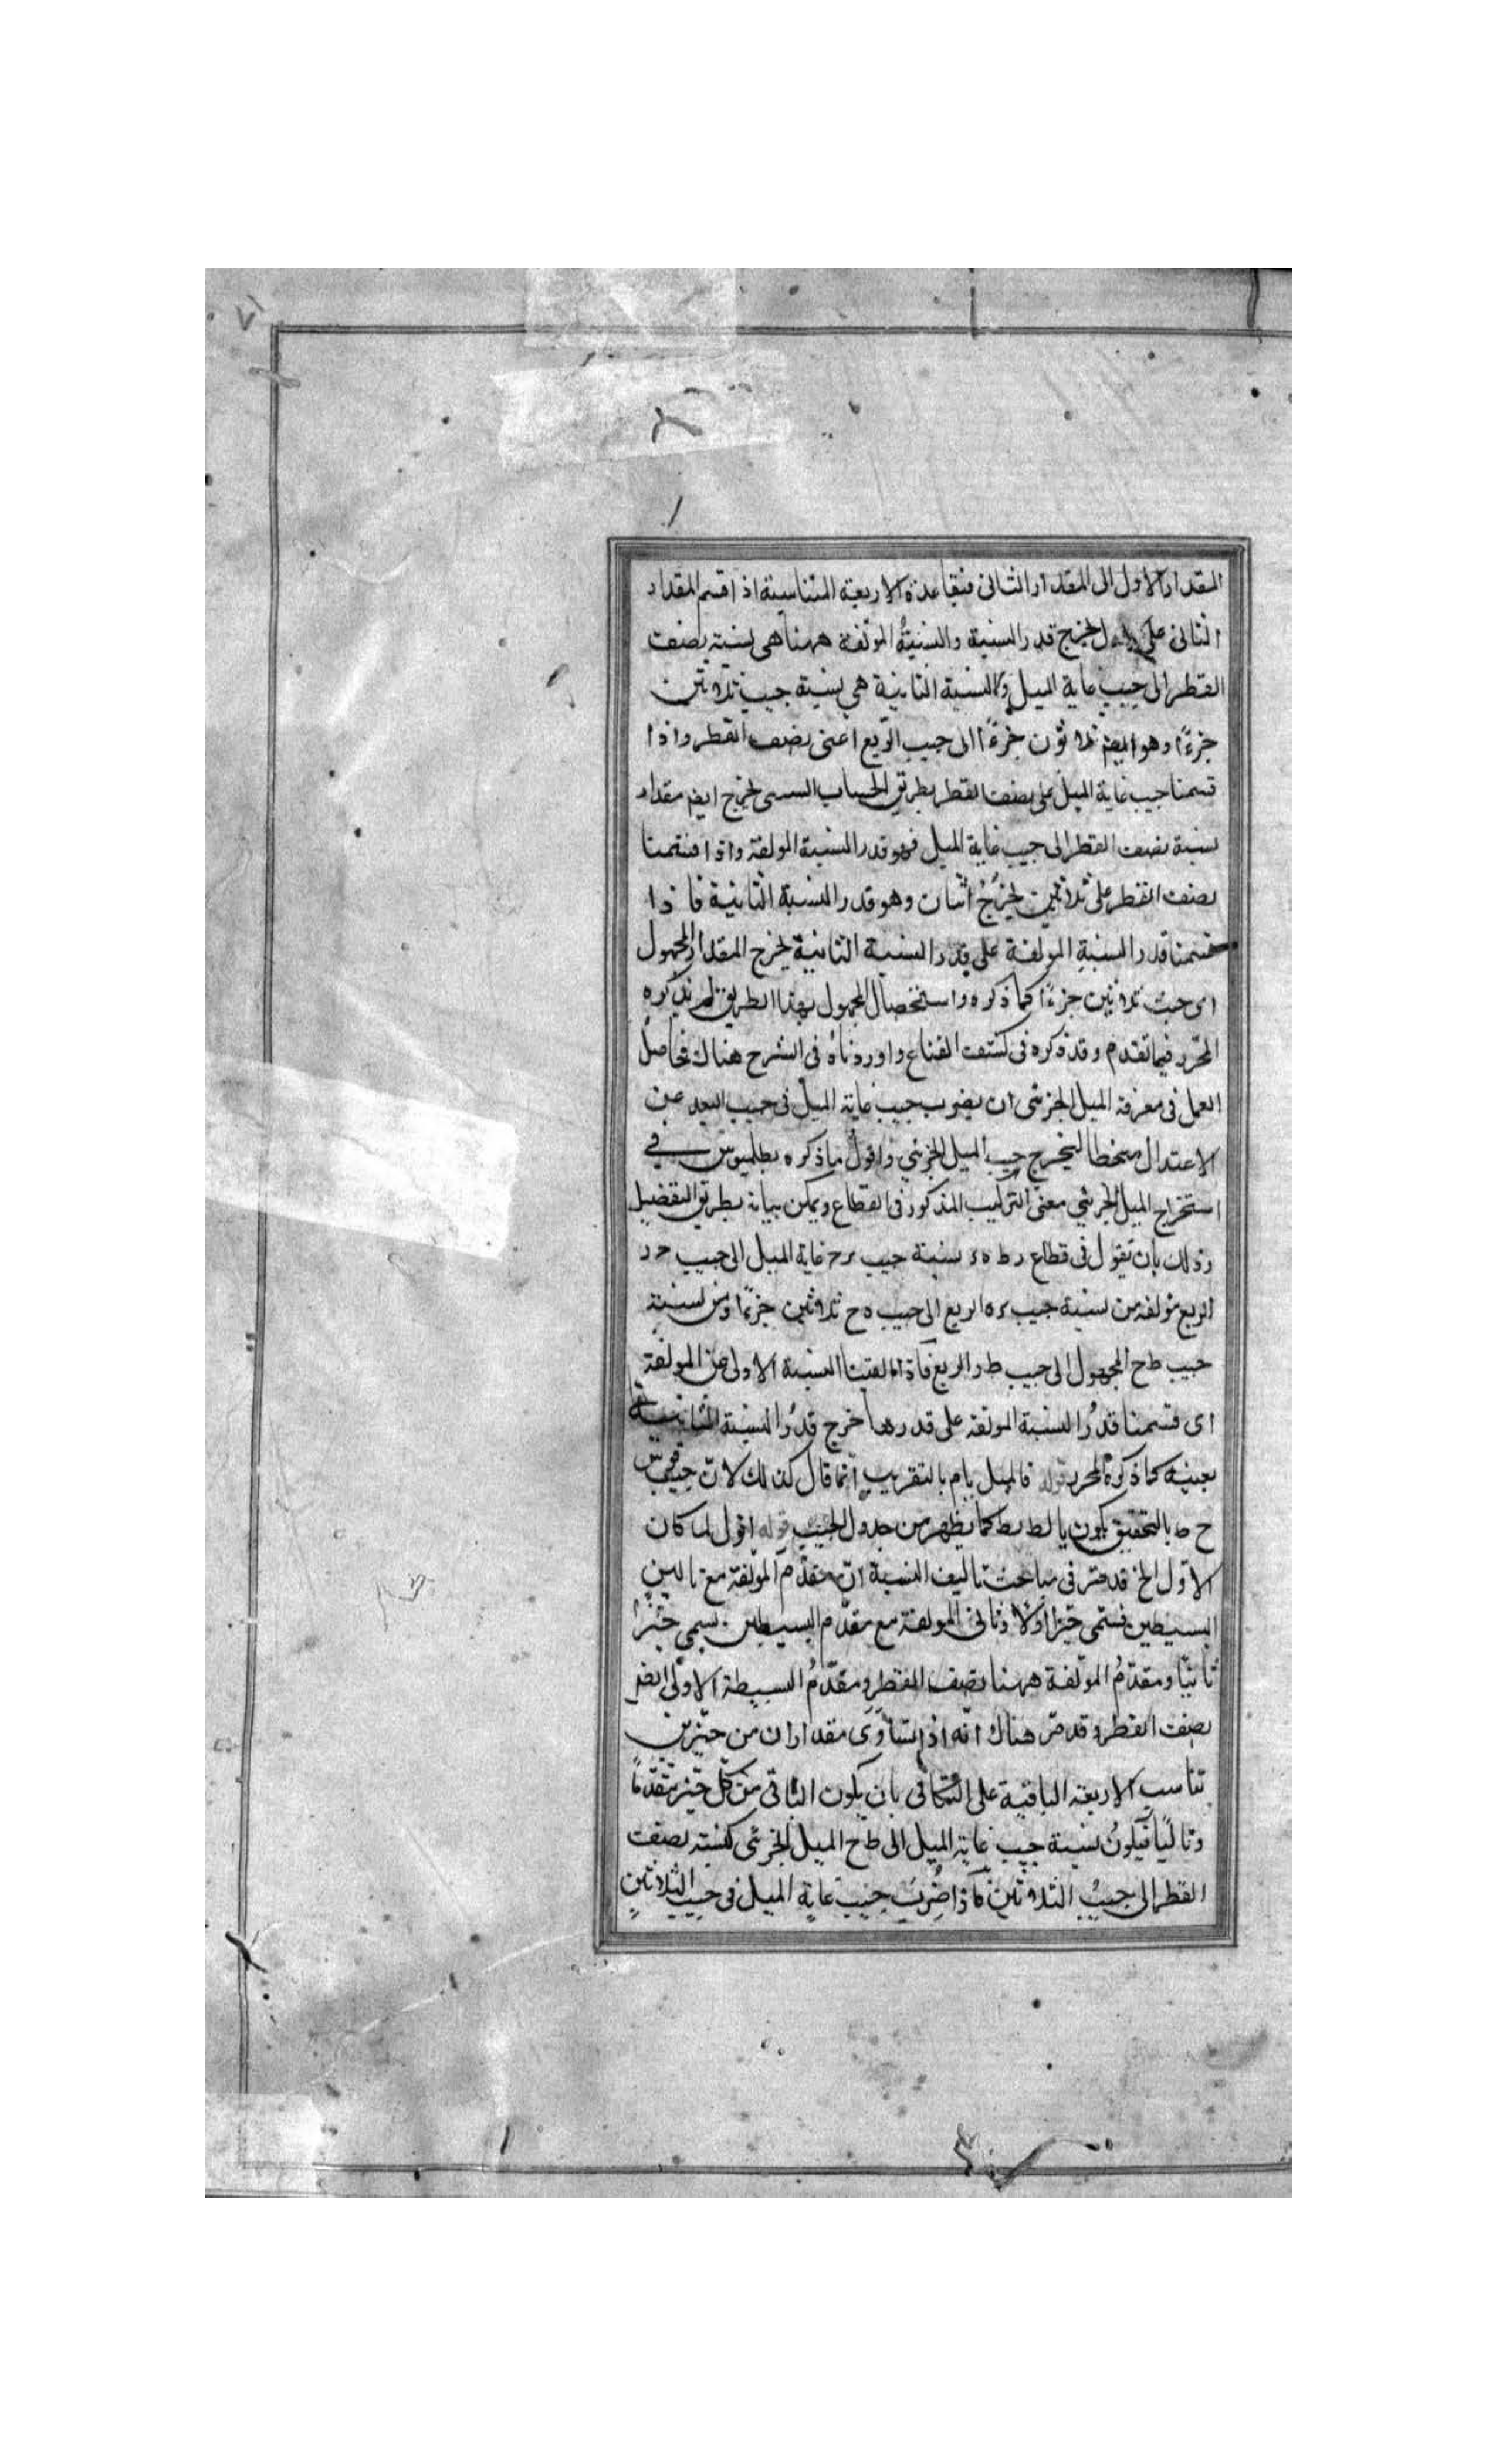 المقدار الاول الى المقدار الثانى فبقاعدة الاربعة المتناسبة اذا قسم المقدار
الثانى على الاول يخرج قدر النسبة والنسبة المولفة ههنا هى نسبة نصف
القطر الى جيب غاية الميل والنسبة الثانية هى نسبة جيب ثلاثين
جزءًا وهو ايضا ثلاثون جزءًا الى جيب الربع اعنى نصف القطر واذا
قسمنا جيب غاية الميل على نصف القطر بطريق الحساب الستينى يخرج ايضا مقدار
نسبة نصف القطر الى جيب غاية الميل فهو قدر النسبة المولفة واذا قسمنا
نصف القطر على ثلاثين يخرج اثنان وهو قدر النسبة الثانية فاذا
قسمنا قدر النسبة المولفة على قدر النسبة الثانية يخرج المقدار المجهول
اى جيب ثلاثين جزءًا كما ذكره واستحصال المجهول بهذا الطريق لم يذكره
المحرر فيما تقدم وقد ذكره فى كشف القناع واوردناه فى الشرح هناك فحاصل
العمل فى معرفة الميل الجزئى ان يضرب جيب غاية الميل فى جيب البعد عن
الاعتدال منحطا ليخرج جيب الميل الجزئي واقول ما ذكره بطلميوس في
استخراج الميل الجزئي معنى التركيب المذكور فى القطاع ويمكن بيانه بطريق التفصيل
وذلك بان نقول فى قطاع ر ط ه نسبة جيب رح غاية الميل الى جيب ح د
الربع مولفة من نسبة جيب ره الربع الى جيب ه ح ثلاثين جزءًا ومن نسبة
جيب ط ح المجهول الى جيب ط د الربع فاذا القينا النسبة الاولى من المولفة
اى قسمنا قدر النسبة المولفة على قدرها خرج قدر النسبة الثانية
بعينه كما ذكره المحرر قوله فالميل يام بالتقريب انما قال كذلك لان جيب قوس
ح ط بالتحقيق يكون يا لط نط كما يظهر من جدول الجيب قوله اقول لما كان
الاول الخ قد مر فى مباحث تاليف النسبة ان مقدم المولفة مع تاليي
البسيطين تسمى حيزا اولا وتالى المولفة مع مقدم البسيطين يسمى حيزا
ثانيا ومقدم المولفة ههنا نصف القطر ومقدم البسيطة الاولى ايضا
نصف القطر وقد مر هناك انه اذا تساوى مقداران من حيزين
تناسب الاربعة الباقية على التكافى بان يكون الباقى من كل حيز مقدما
وتاليًا فيكون نسبة جيب غاية الميل الى ط ح الميل الجزئى كنسبة نصف
القطر الى جيب الثلاثين فاذا ضرب جيب غاية الميل فى جيب الثلاثين